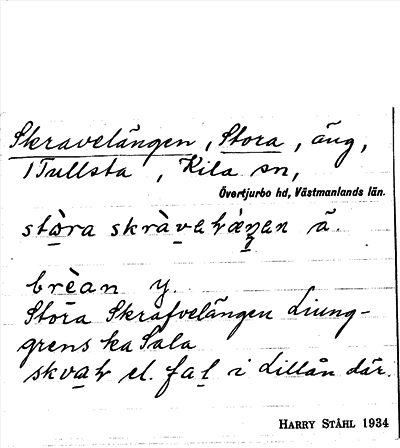 Skravelängen, Stora, äng,
1 Tullsta, Kila sn,
Övertjurbo hd, Västmanlands län.
stòra skràveɫæ̀ŋen ä.
brèan y.
Stora Skrafvelängen Liung-
grens ka Sala
skvaɫ el. fal i Lillån där.
HARRY STÅHL 1934